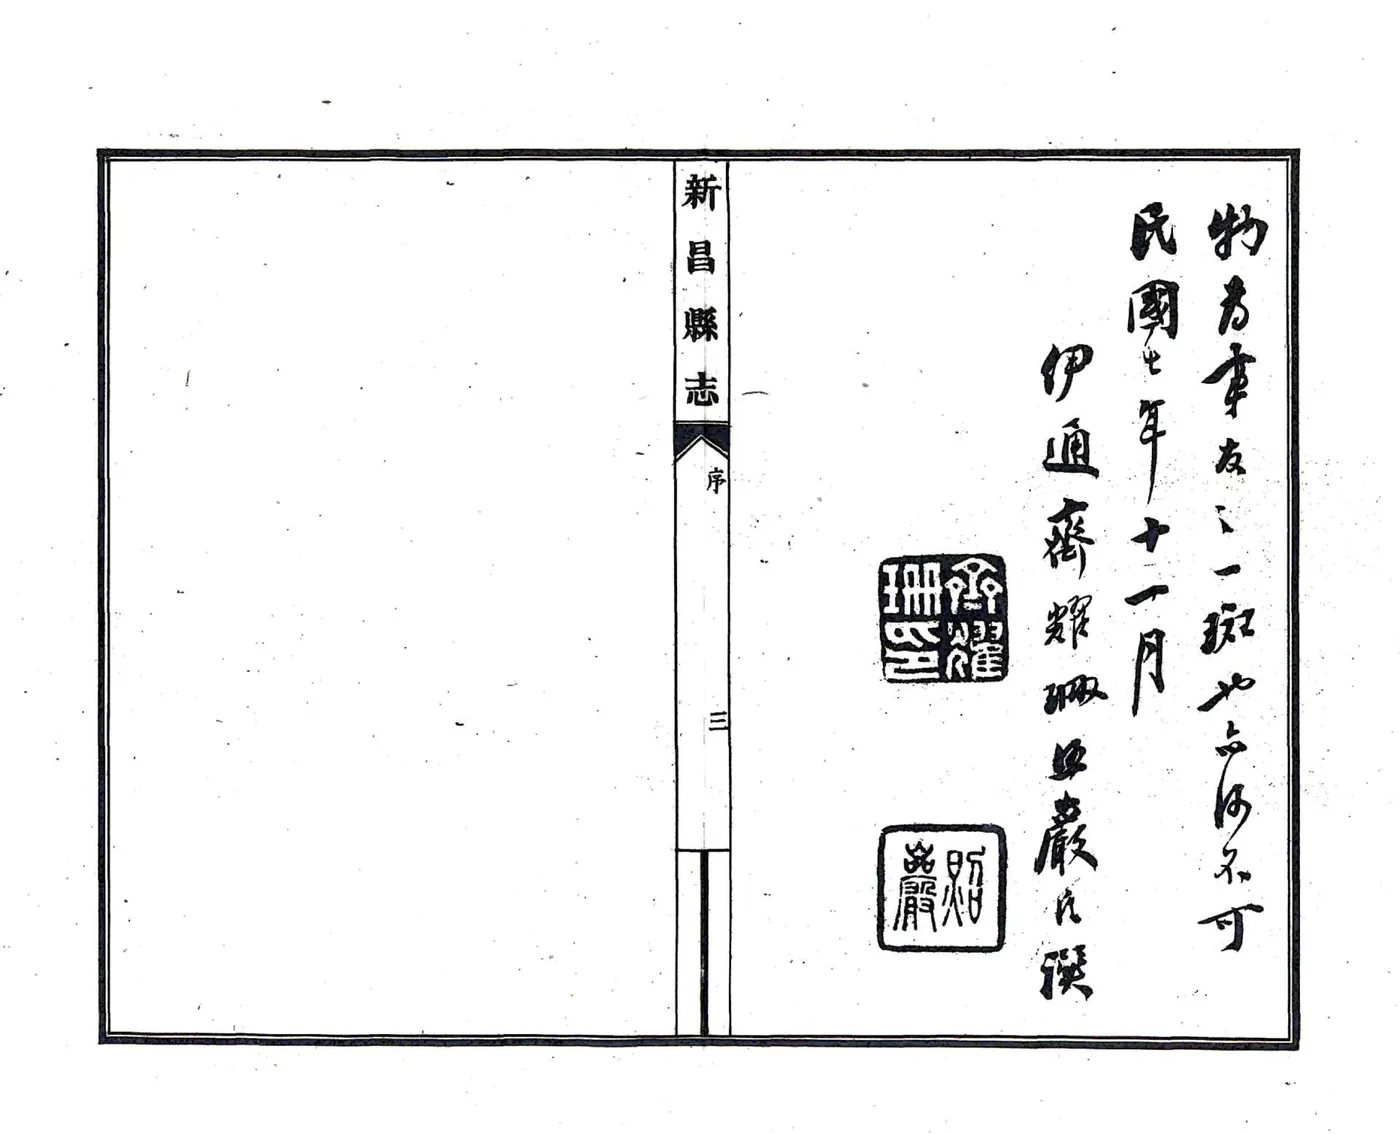 物為之一斑也亦何不可
民國七年十一月
伊通齊耀珊照巖氏撰
齊耀珊印
照巖
新昌縣志
序
三